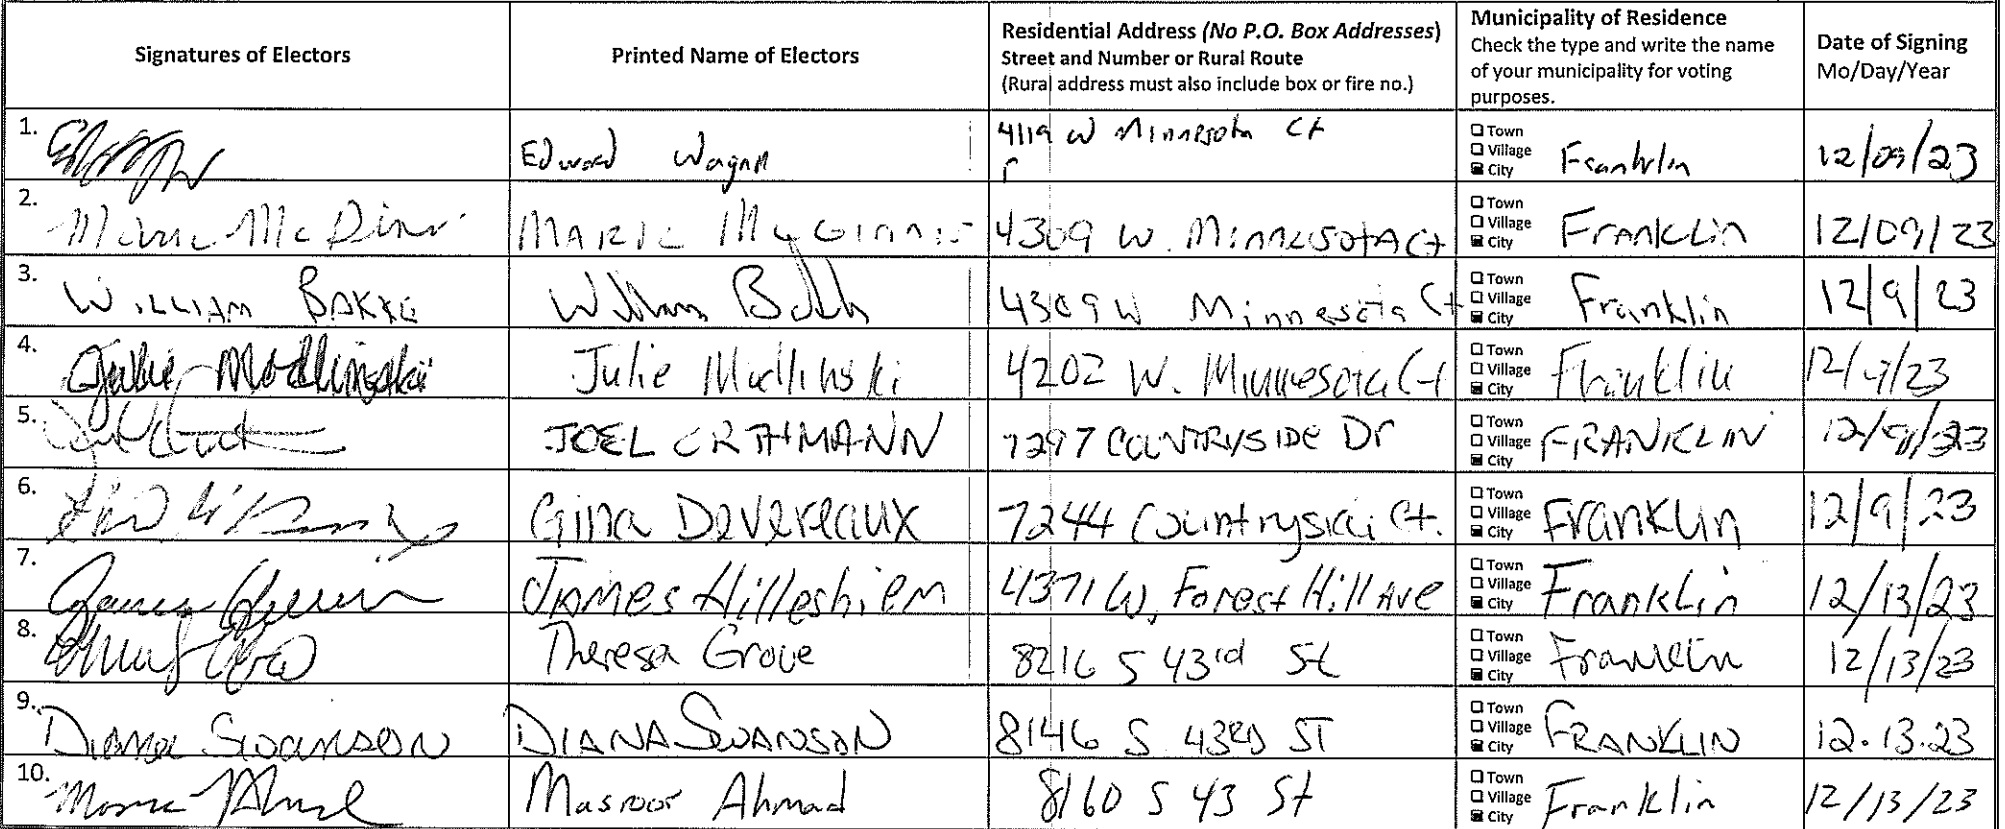 Signatures of Electors
Printed Name of Electors
Residential Address (No P.O. Box Addresses)
Street and Number or Rural Route
(Rural address must also include box or fire no.)
Municipality of Residence
Check the type and write the name
of your municipality for voting
purposes.
Date of Signing
Mo/Day/Year
1.
Edward Wagner
4119 W Minnesota Ct
Town
Village
City
Franklin
12/09/23
2.
Marie McGinnis
4309 W. Minnesota Ct
Town
Village
City
Franklin
12/09/23
3.
William Bakke
William
4309 W Minnesota Ct
Town
Village
City
Franklin
12/9/23
4.
Julie Modlinski
Julie Modlinski
4202 W. Minnesota Ct
Town
Village
City
Franklin
5.
JOEL ORTHMANN
7297 COUNTRYSIDE Dr
Town
Village
City
FRANKLIN
6.
Gina Devereaux
7244 Ct.
Town
Village
City
Franklin
12/9/23
7.
James Hilleshiem
4371 W. Forest Hill Ave
Town
Village
City
Franklin
12/13/23
8.
Theresa Grove
8216 S 43rd St
Town
Village
City
Franklin
12/13/23
9.
Diana Swanson
DIANA SWANSON
8146 S. 43RD ST
Town
Village
City
FRANKLIN
12.13.23
10.
Masroor Ahmad
8160 S 43 St
Town
Village
City
Franklin
12/13/23